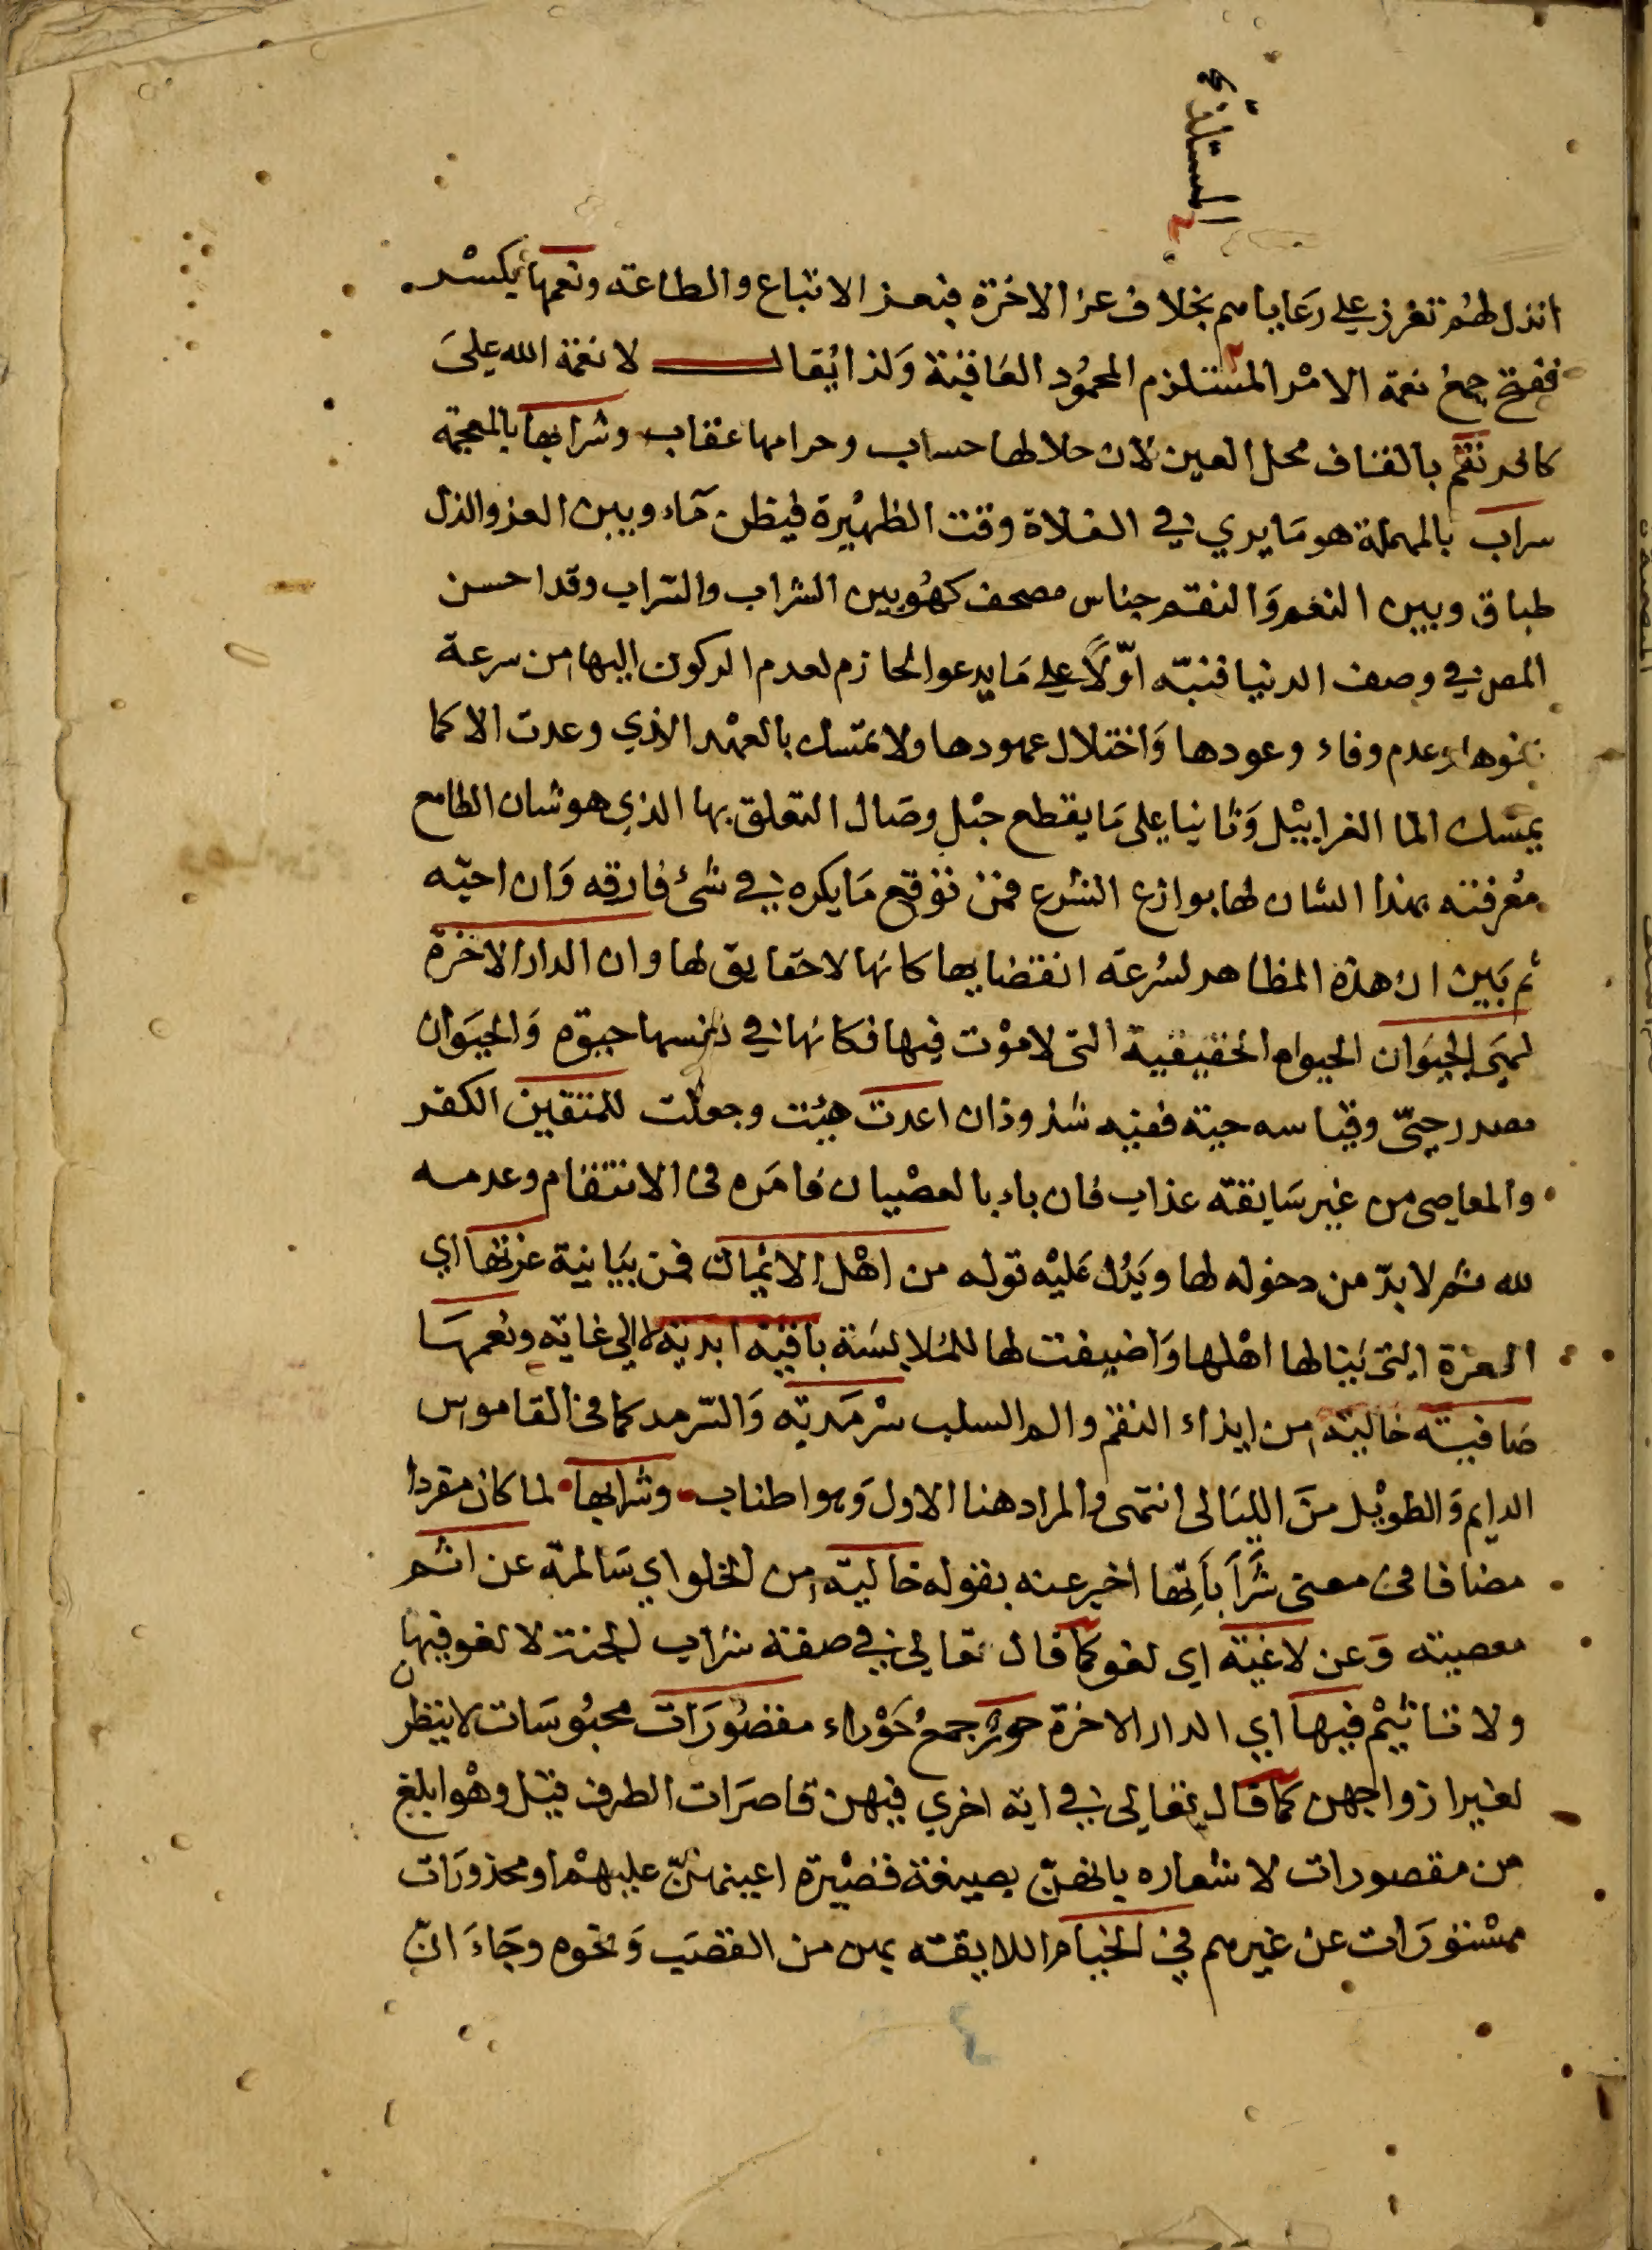 المستلذ ح
انذل لهم تعزز علي رعاياهم بخلاف عز الاخرة فبعز الاتباع والطاعة ونعمها بكسر
ففتح جمع نعمة الامر المستلزم المحمود العاقبة ولذا يقال لا نعمة الله علي
كافر نقم بالقاف محل العين لان حلالها حساب وحرامها عقاب وشرابها بالمعجمة
سراب بالمهملة هو ما يري في الفلاة وقت الظهيرة فيظن ماء وبين العز والذل
طباق وبين النعم والنقم جناس مصحف كهو بين الشراب والسراب وقد احسن
المص في وصف الدنيا فنبه اولا علي ما يدعو الحازم لعدم الركون اليها من سرعة
وعدم وفاء وعودها واختلال عهودها ولا تمسك بالعهد الذي وعدت الا كما
يمسك الما الغرابيل وثانيا علي ما يقطع حبل وصال التعلق بها الذي هو شان الطامع
معرفته بهذا الشان لها بوازع الشرع فمن توقع ما يكره في شئ فارقه وان احبه
ثم بين ان هذه المظاهر لسرعة انقضايها كانها لا حقايق لها وان الدار الاخرة
لهي الحيوان الحيوة الحقيقية التي لا موت فيها فكانها في نفسها حيوة والحيوان
مصدر حيي وقياسه حية ففيه شذوذان اعدت هيئت وجعلت للمتقين الكفر
والمعاصي من غير سابقة عذاب فان باء بالعصيان فامره في الانتقام وعدمه
لله ثم لا بد من دخوله لها ويدل عليه قوله من اهل الايمان فمن بيانية عزتها اي
العزة التي ينالها اهلها واضيفت لها للملابسة باقية ابدية لا الي غاية ونعمها
صافية خالية من ايذاء النقم والم السلب سرمدية والسرمد كما في القاموس
الدايم والطويل من الليالي انتهى والمراد هنا الاول وهو اطناب وشرابها لما كان مفردا
مضافا في معنى شراباتها اخبر عنه بقوله خالية من الخلو اي سالمة عن اثم
معصية وعن لاغية اي لغو كما قال تعالي في صفة شراب الجنة لا لغو فيها
ولا تاثيم فيها اي الدار الاخرة حور جمع حوراء مقصورات محبوسات لا ينظرن
لغير ازواجهن كما قال تعالي في اية اخري فيهن قاصرات الطرف قيل وهو ابلغ
من مقصورات لا شعاره بانهن بصيغة قصيرة اعينهن عليهم او مخدورات
مستورات عن غيرهم في الخيام اللايقة بهن من القصب ونحوه وجاء ان